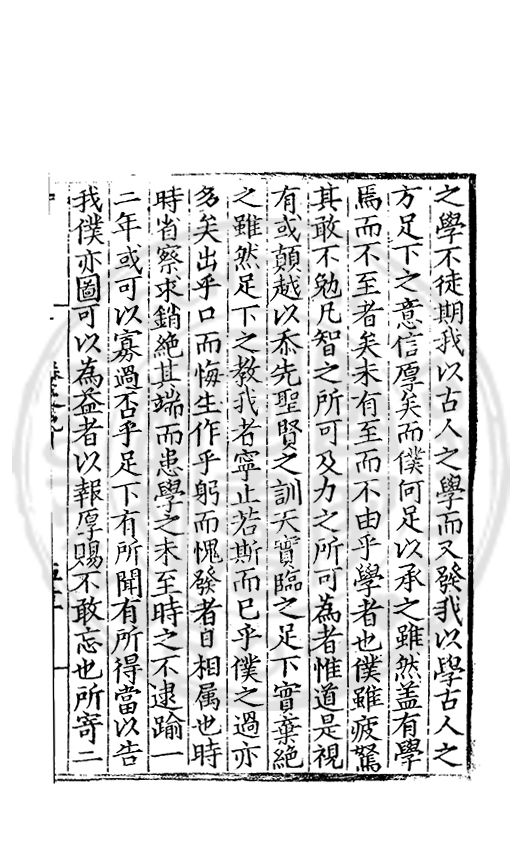 之學不徒期我以古人之學而又發我以學古人之
方足下之意信厚矣而僕何足以承之雖然盖有學
焉而不至者矣未有至而不由乎學者也僕雖疲駑
其敢不勉凡智之所可及力之所可為者惟道是視
有或顛越以忝先聖賢之訓天實臨之足下實棄絕
之雖然足下之教我者寧止若斯而已乎僕之過亦
多矣出乎口而悔生作乎躬而愧發者日相属也時
時省察求銷絕其端而患學之未至時之不逮踰一
二年或可以寡過否乎足下有所聞有所得當以告
我僕亦圖可以為益者以報厚賜不敢忘也所寄二